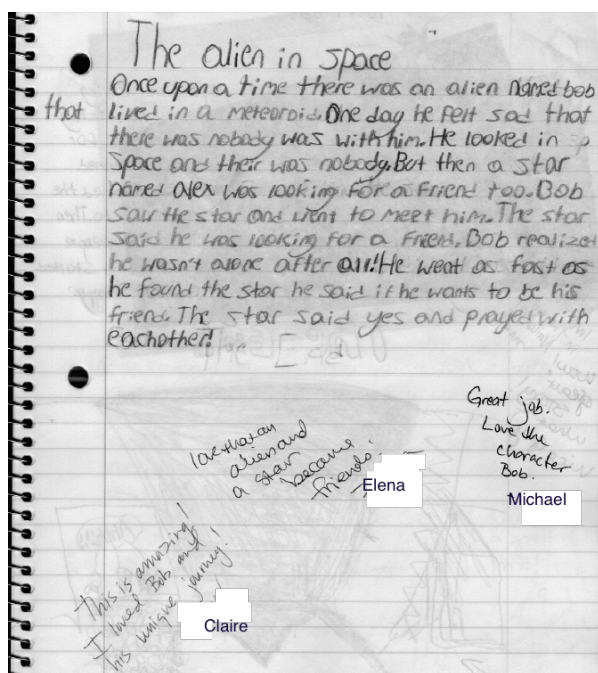 The alien in space
Once upon a time there was an alien named bob
that lived in a meteoroid. One day he felt sad that
there was nobody was with him. He looked in
space and their was nobody. But then a star
named alex was looking for a friend too. Bob
saw the star and went to meet him. The star
said he was looking for a friend. Bob realized
he wasn't alone after all! He went as fast as
he found the star he said if he wants to be his
friend. The star said yes and prayed with
eachother!
Great job.
Love the
character
Bob.
Michael
love that an
alien and
a star
became
friends!
Elena
This is amazing!
I loved Bob and
his unique journey!
Claire